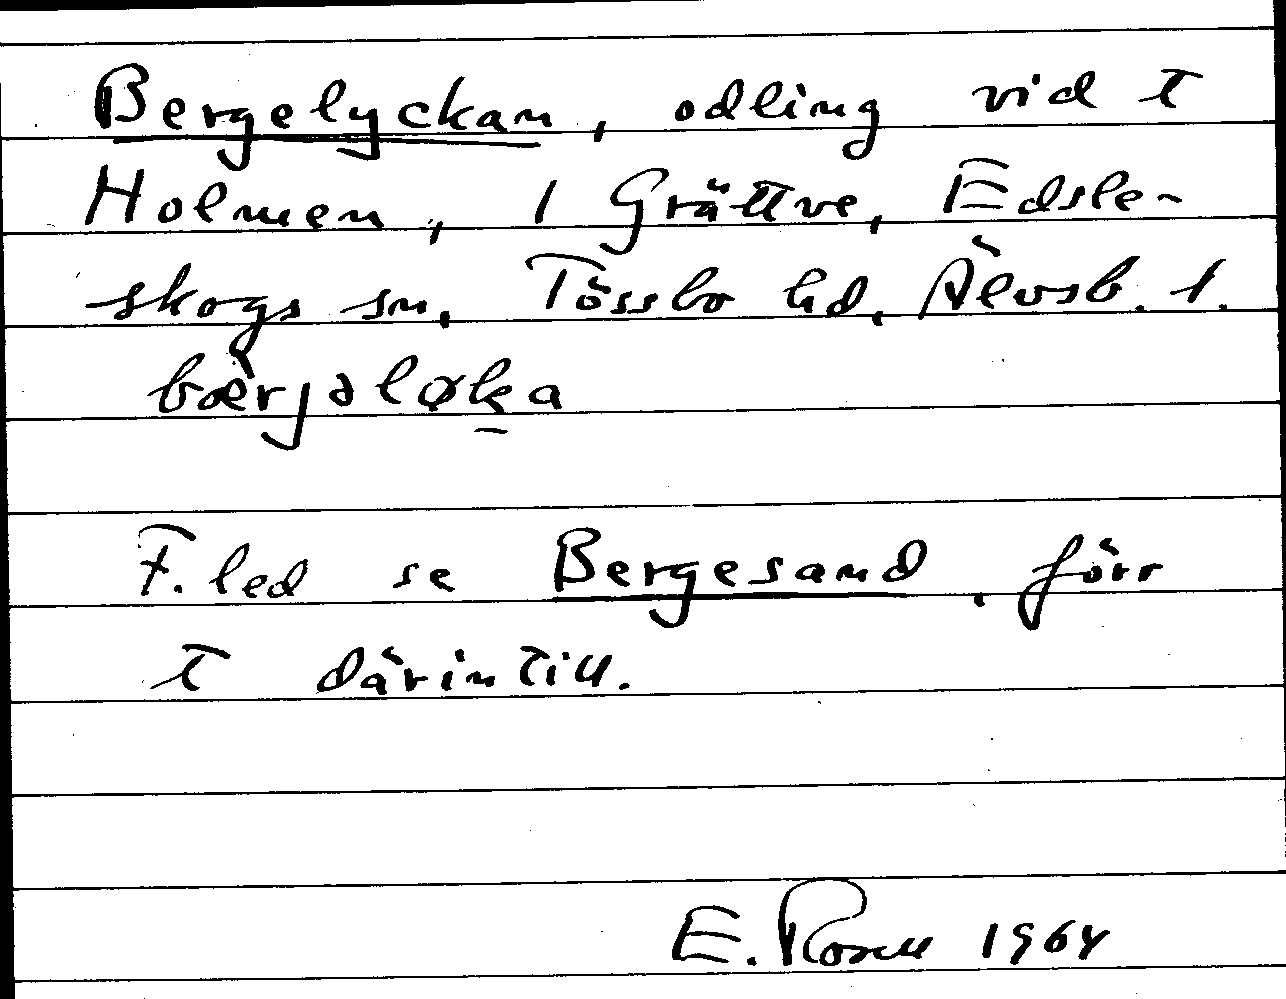 Bergelyckan, odling vid t
Holmen, 1 Grättve, Edsle-
skogs sn, Tössbo hd, Älvsb. l.
bæ̀rjəløk̠a
F. led se Bergesand, förr
t därintill.
E. Rosell 1964